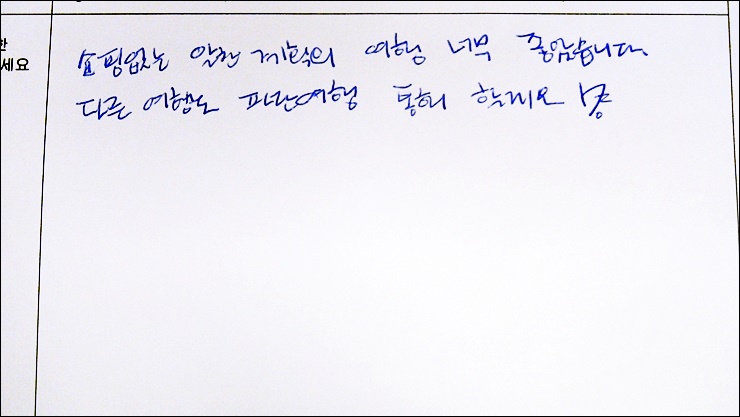 한
세요
쇼핑없는 알찬 계획의 여행 너무 좋았습니다.
다른 여행도 파란여행 통해 할게요